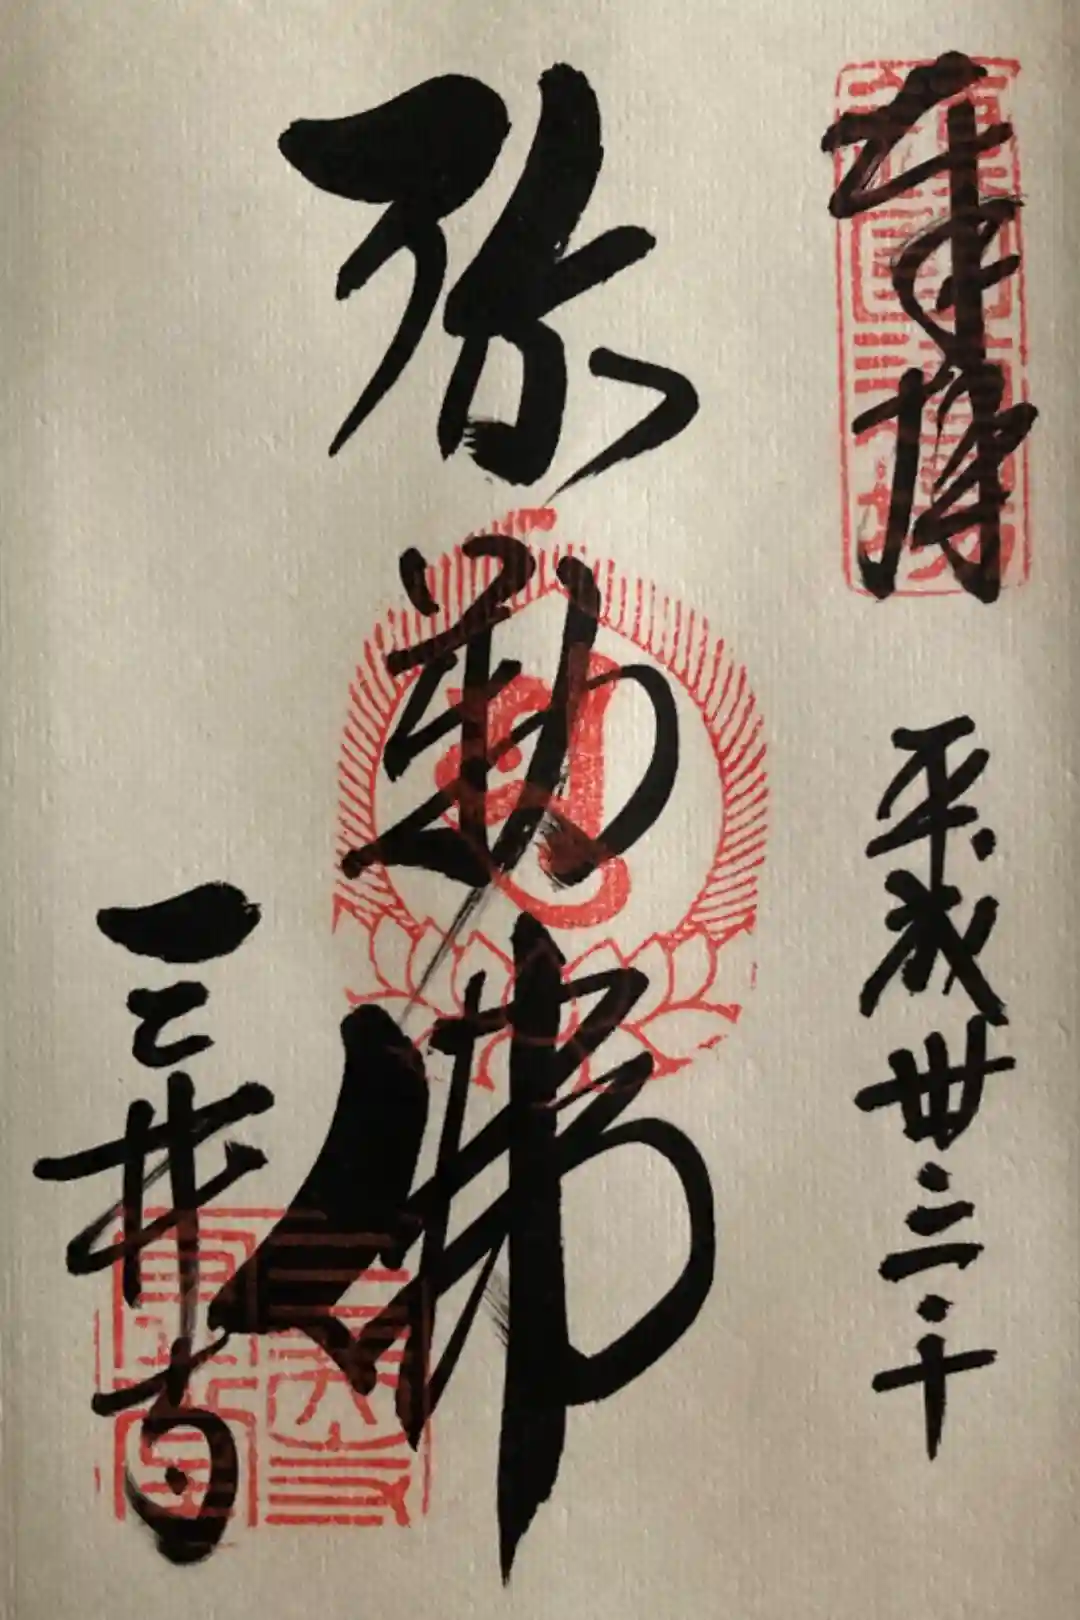 奉拝
平成卅・二・十
弥勒佛
三井寺